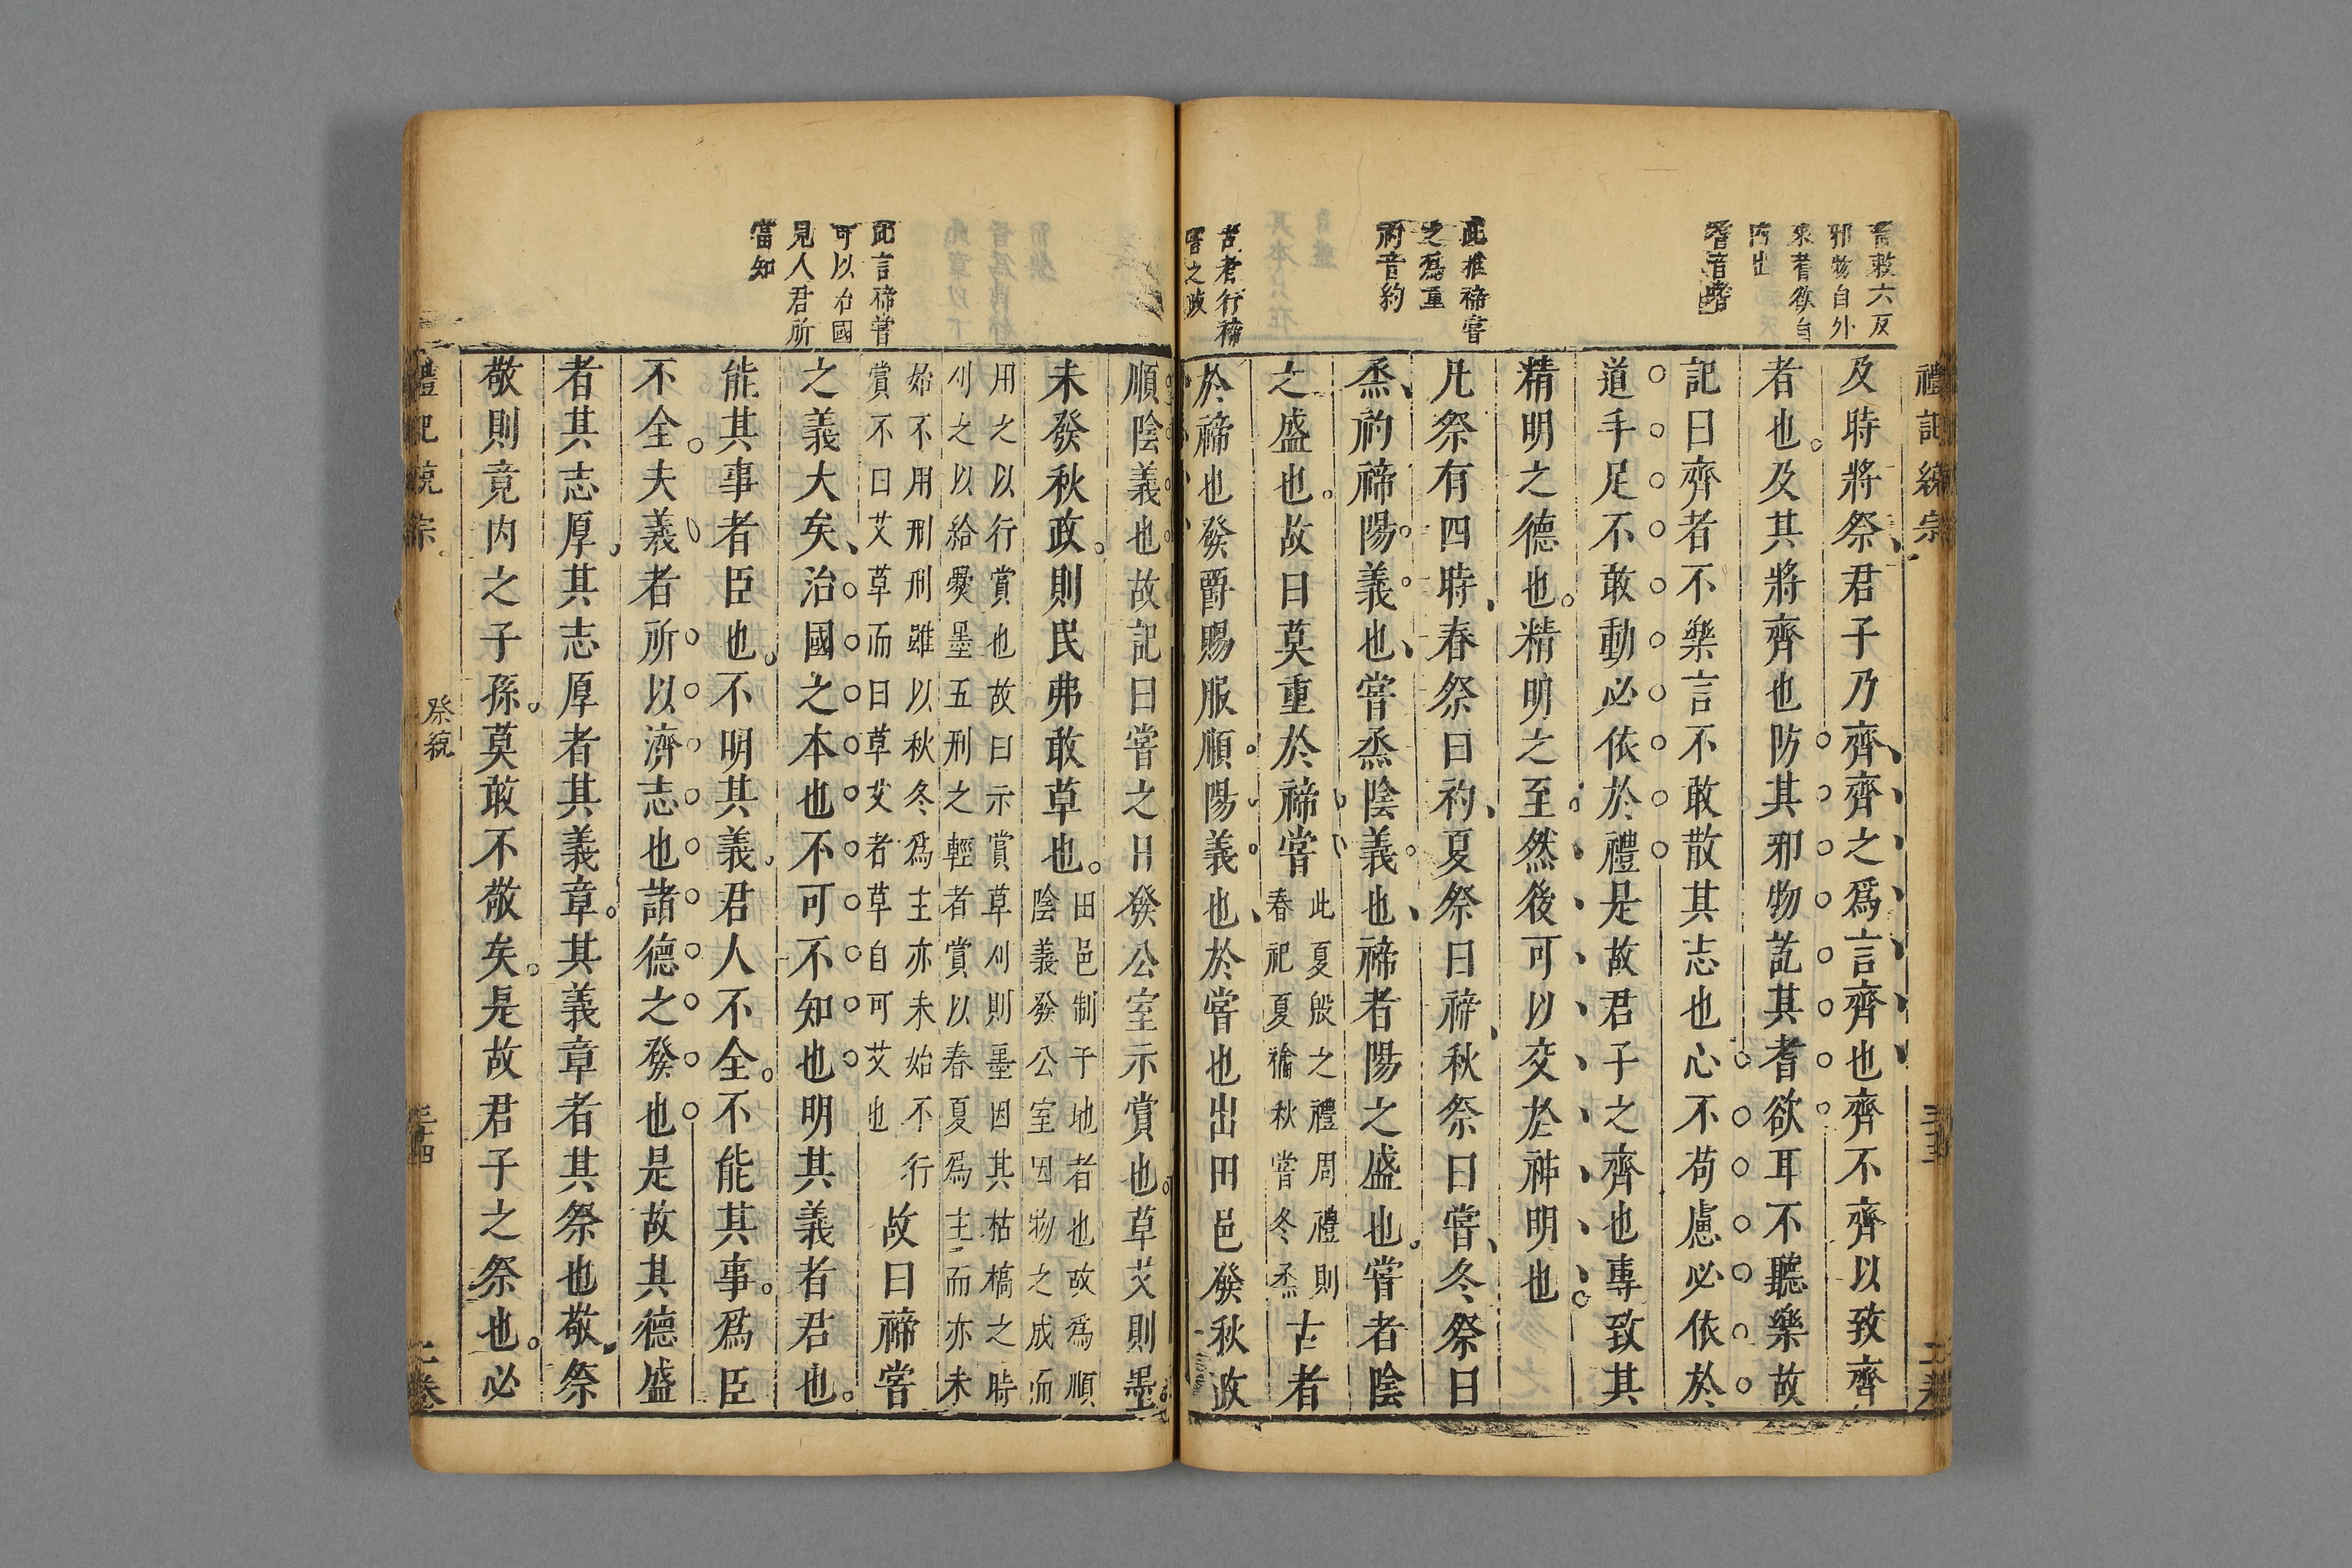 禮記統宗
二卷
邪物自外
來者欲自
内出
耆音嗜
此推禘嘗
之為重
礿音約
古者行禘
嘗之政
及時將祭君子乃齊齊之爲言齊也齊不齊以致齊
者也及其將齊也防其邪物訖其耆欲耳不聽樂故
記曰齊者不樂言不敢散其志也心不苟慮必依於
道手足不敢動必依於禮是故君子之齊也專致其
精明之德也精明之至然後可以交於神明也
凡祭有四時春祭曰礿夏祭曰禘秋祭曰嘗冬祭曰
烝礿禘陽義也嘗烝陰義也禘者陽之盛也嘗者陰
之盛也故曰莫重於禘嘗此夏殷之禮周禮則春祀夏禴秋嘗冬烝古者
於禘也發爵賜服順陽義也於嘗也出田邑發秋政
此言禘嘗
可以治國
見人君所
當知
順陰義也故記曰嘗之日發公室示賞也草艾則墨
未發秋政則民弗敢草也田邑制于地者也故爲順陰義發公室因物之成而
用之以行賞也故曰示賞草刈則墨因其枯槁之時刈之以給爨墨五刑之輕者賞以春夏爲主而亦未
始不用刑刑雖以秋冬爲主亦未始不行賞不曰艾草而曰草艾者草自可艾也故曰禘嘗
之義大矣治國之本也不可不知也明其義者君也
能其事者臣也不明其義君人不全不能其事爲臣
不全夫義者所以濟志也諸德之發也是故其德盛
者其志厚其志厚者其義章其義章者其祭也敬祭
敬則竟内之子孫莫敢不敬矣是故君子之祭也必
禮記統宗
祭統
二卷